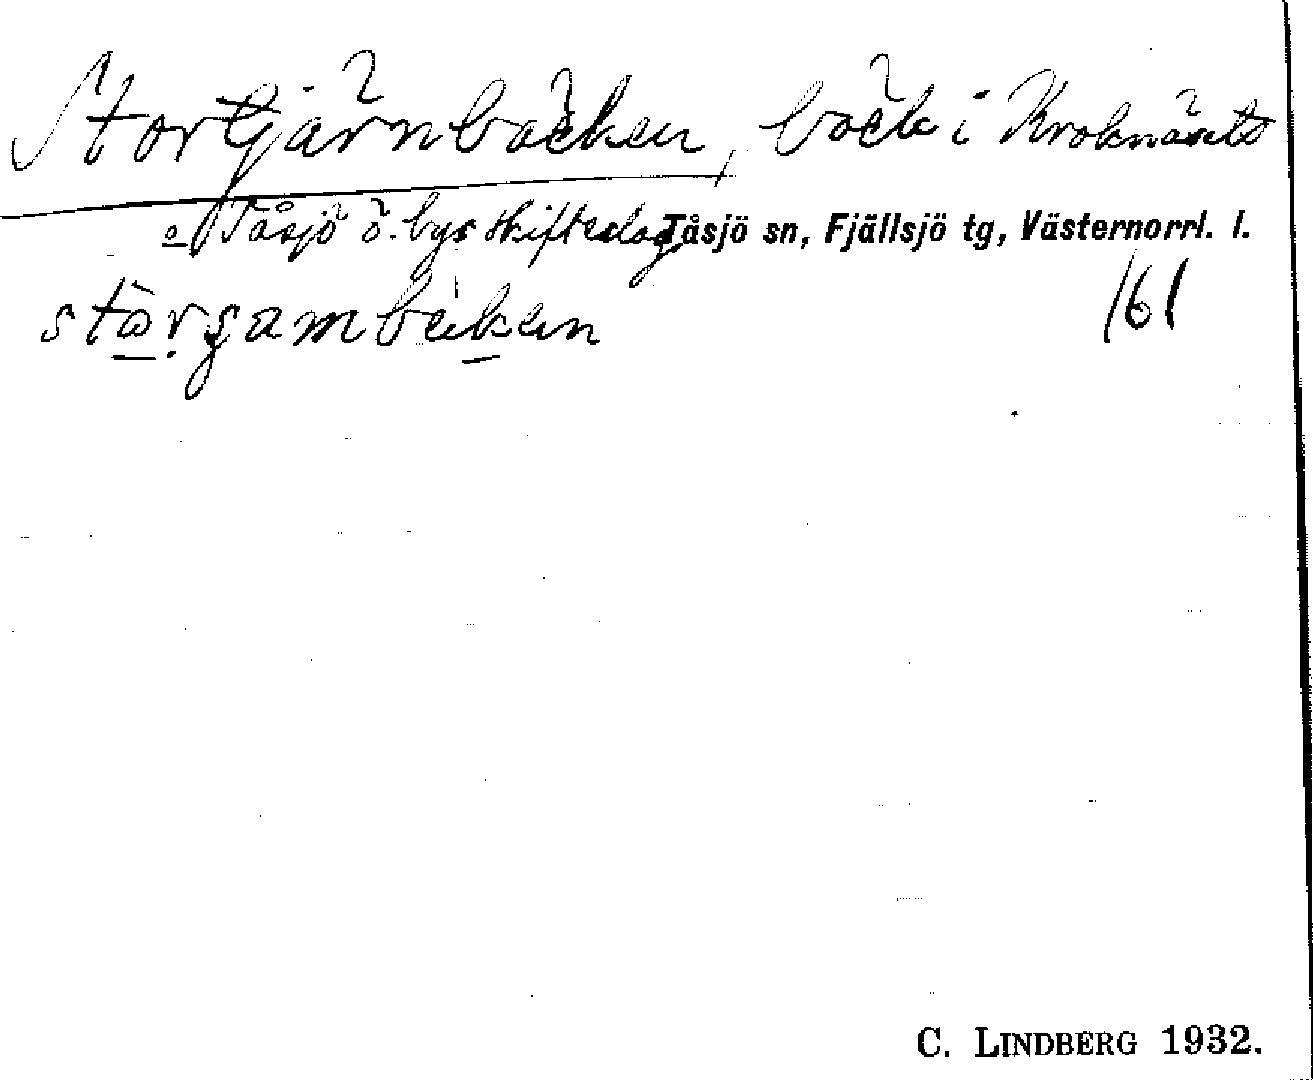 Stortjärnbäcken, bäck i Kroknäsets
o Tåsjö ö. bys skifteslag Tåsjö sn, Fjällsjö tg, Västernorrl. l.
161
C. LINDBERG 1932.